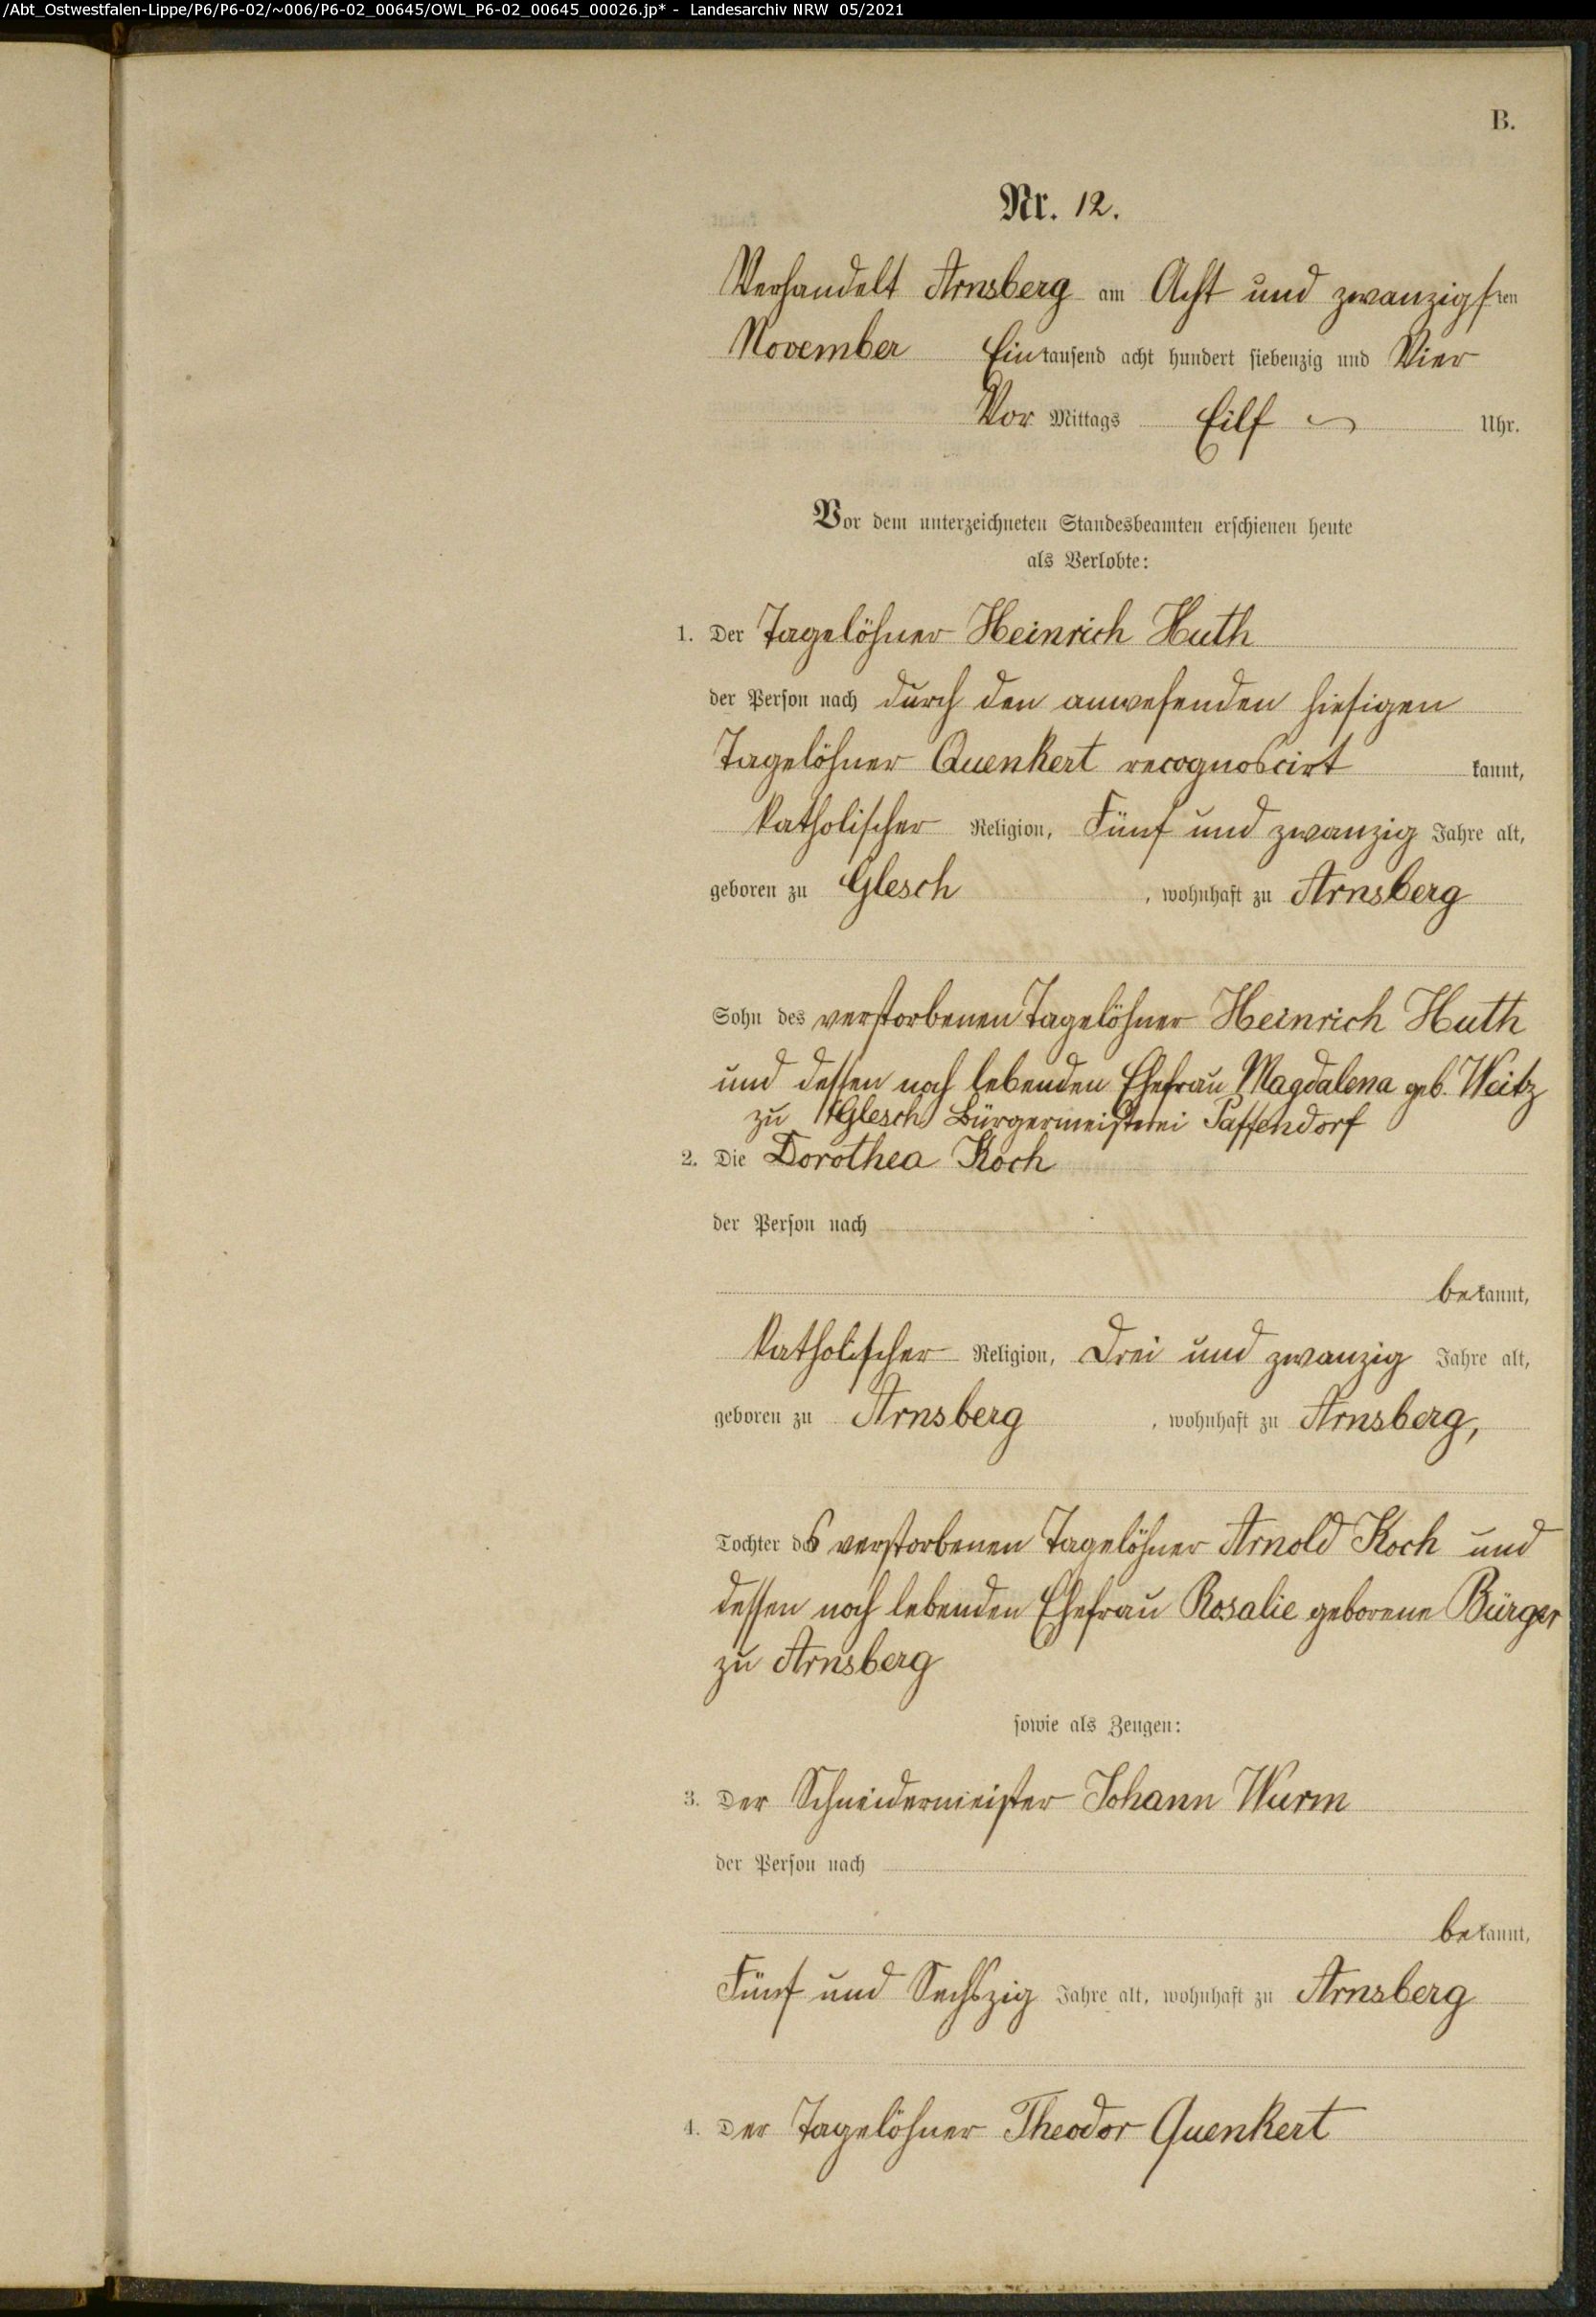 /Abt_Ostwestfalen-Lippe/P6/P6-02/~006/P6-02_00645/OWL_P6-02_00645_00026.jp* - Landesarchiv NRW 05/2021
B.
Nr. 12.
Verhandelt Arnsberg am Acht und zwanzigsten
November Eintausend acht hundert siebenzig und Vier
Vor Mittags Eilf Uhr.
Vor dem unterzeichneten Standesbeamten erschienen heute
als Verlobte:
1. Der Tagelöhner Heinrich Huth
der Person nach durch den anwesenden hiesigen
Tagelöhner Quenkert recognoscirt kannt,
katholischer Religion, Fünf und zwanzig Jahre alt,
geboren zu Glesch, wohnhaft zu Arnsberg
Sohn des verstorbenen Tagelöhner Heinrich Huth
und dessen noch lebenden Ehefrau Magdalena geb. Weitz
zu Glesch Bürgermeisterei Paffendorf
2. Die Dorothea Koch
der Person nach
bekannt,
katholischer Religion, Drei und zwanzig Jahre alt,
geboren zu Arnsberg, wohnhaft zu Arnsberg,
Tochter des verstorbenen Tagelöhner Arnold Koch und
dessen noch lebenden Ehefrau Rosalie geborene Bürger
zu Arnsberg
sowie als Zeugen:
3. Der Schneidermeister Johann Wurm
der Person nach
bekannt,
Fünf und Sechszig Jahre alt, wohnhaft zu Arnsberg
4. Der Tagelöhner Theodor Quenkert